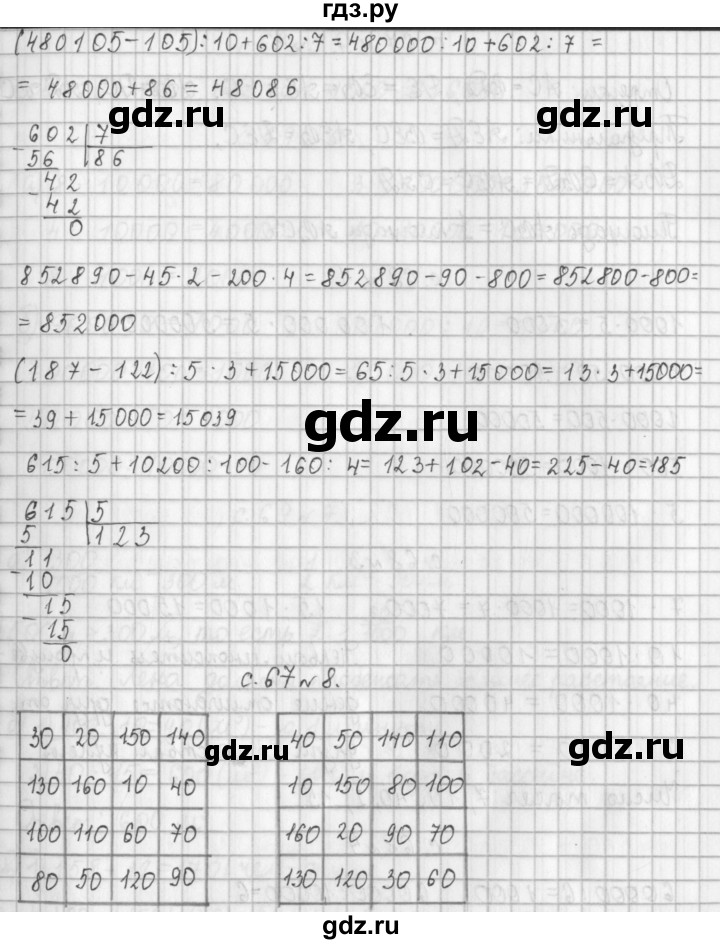 гдз.ру
(480105-105):10+602:7=480000:10+602:7=
=48000+86=48086
gdz.ru
gdz.ru
602 7
56 86
42
42
0
852890-45·2-200·4=852890-90-800=852800-800=
=852000
(187-122):5·3+15000=65:5·3+15000=13·3+15000=
=39+15000=15039
gdz.ru
615:5+10200:100-160:4=123+102-40=225-40=185
615 5
5 123
11
10
15
15
0
с.67№8.
30 20 150 140
130 160 10 40
100 110 60 70
80 50 120 90
40 50 140 110
10 150 80 100
160 20 90 70
130 120 30 60
gdz.ru
gdz.ru
gdz.ru